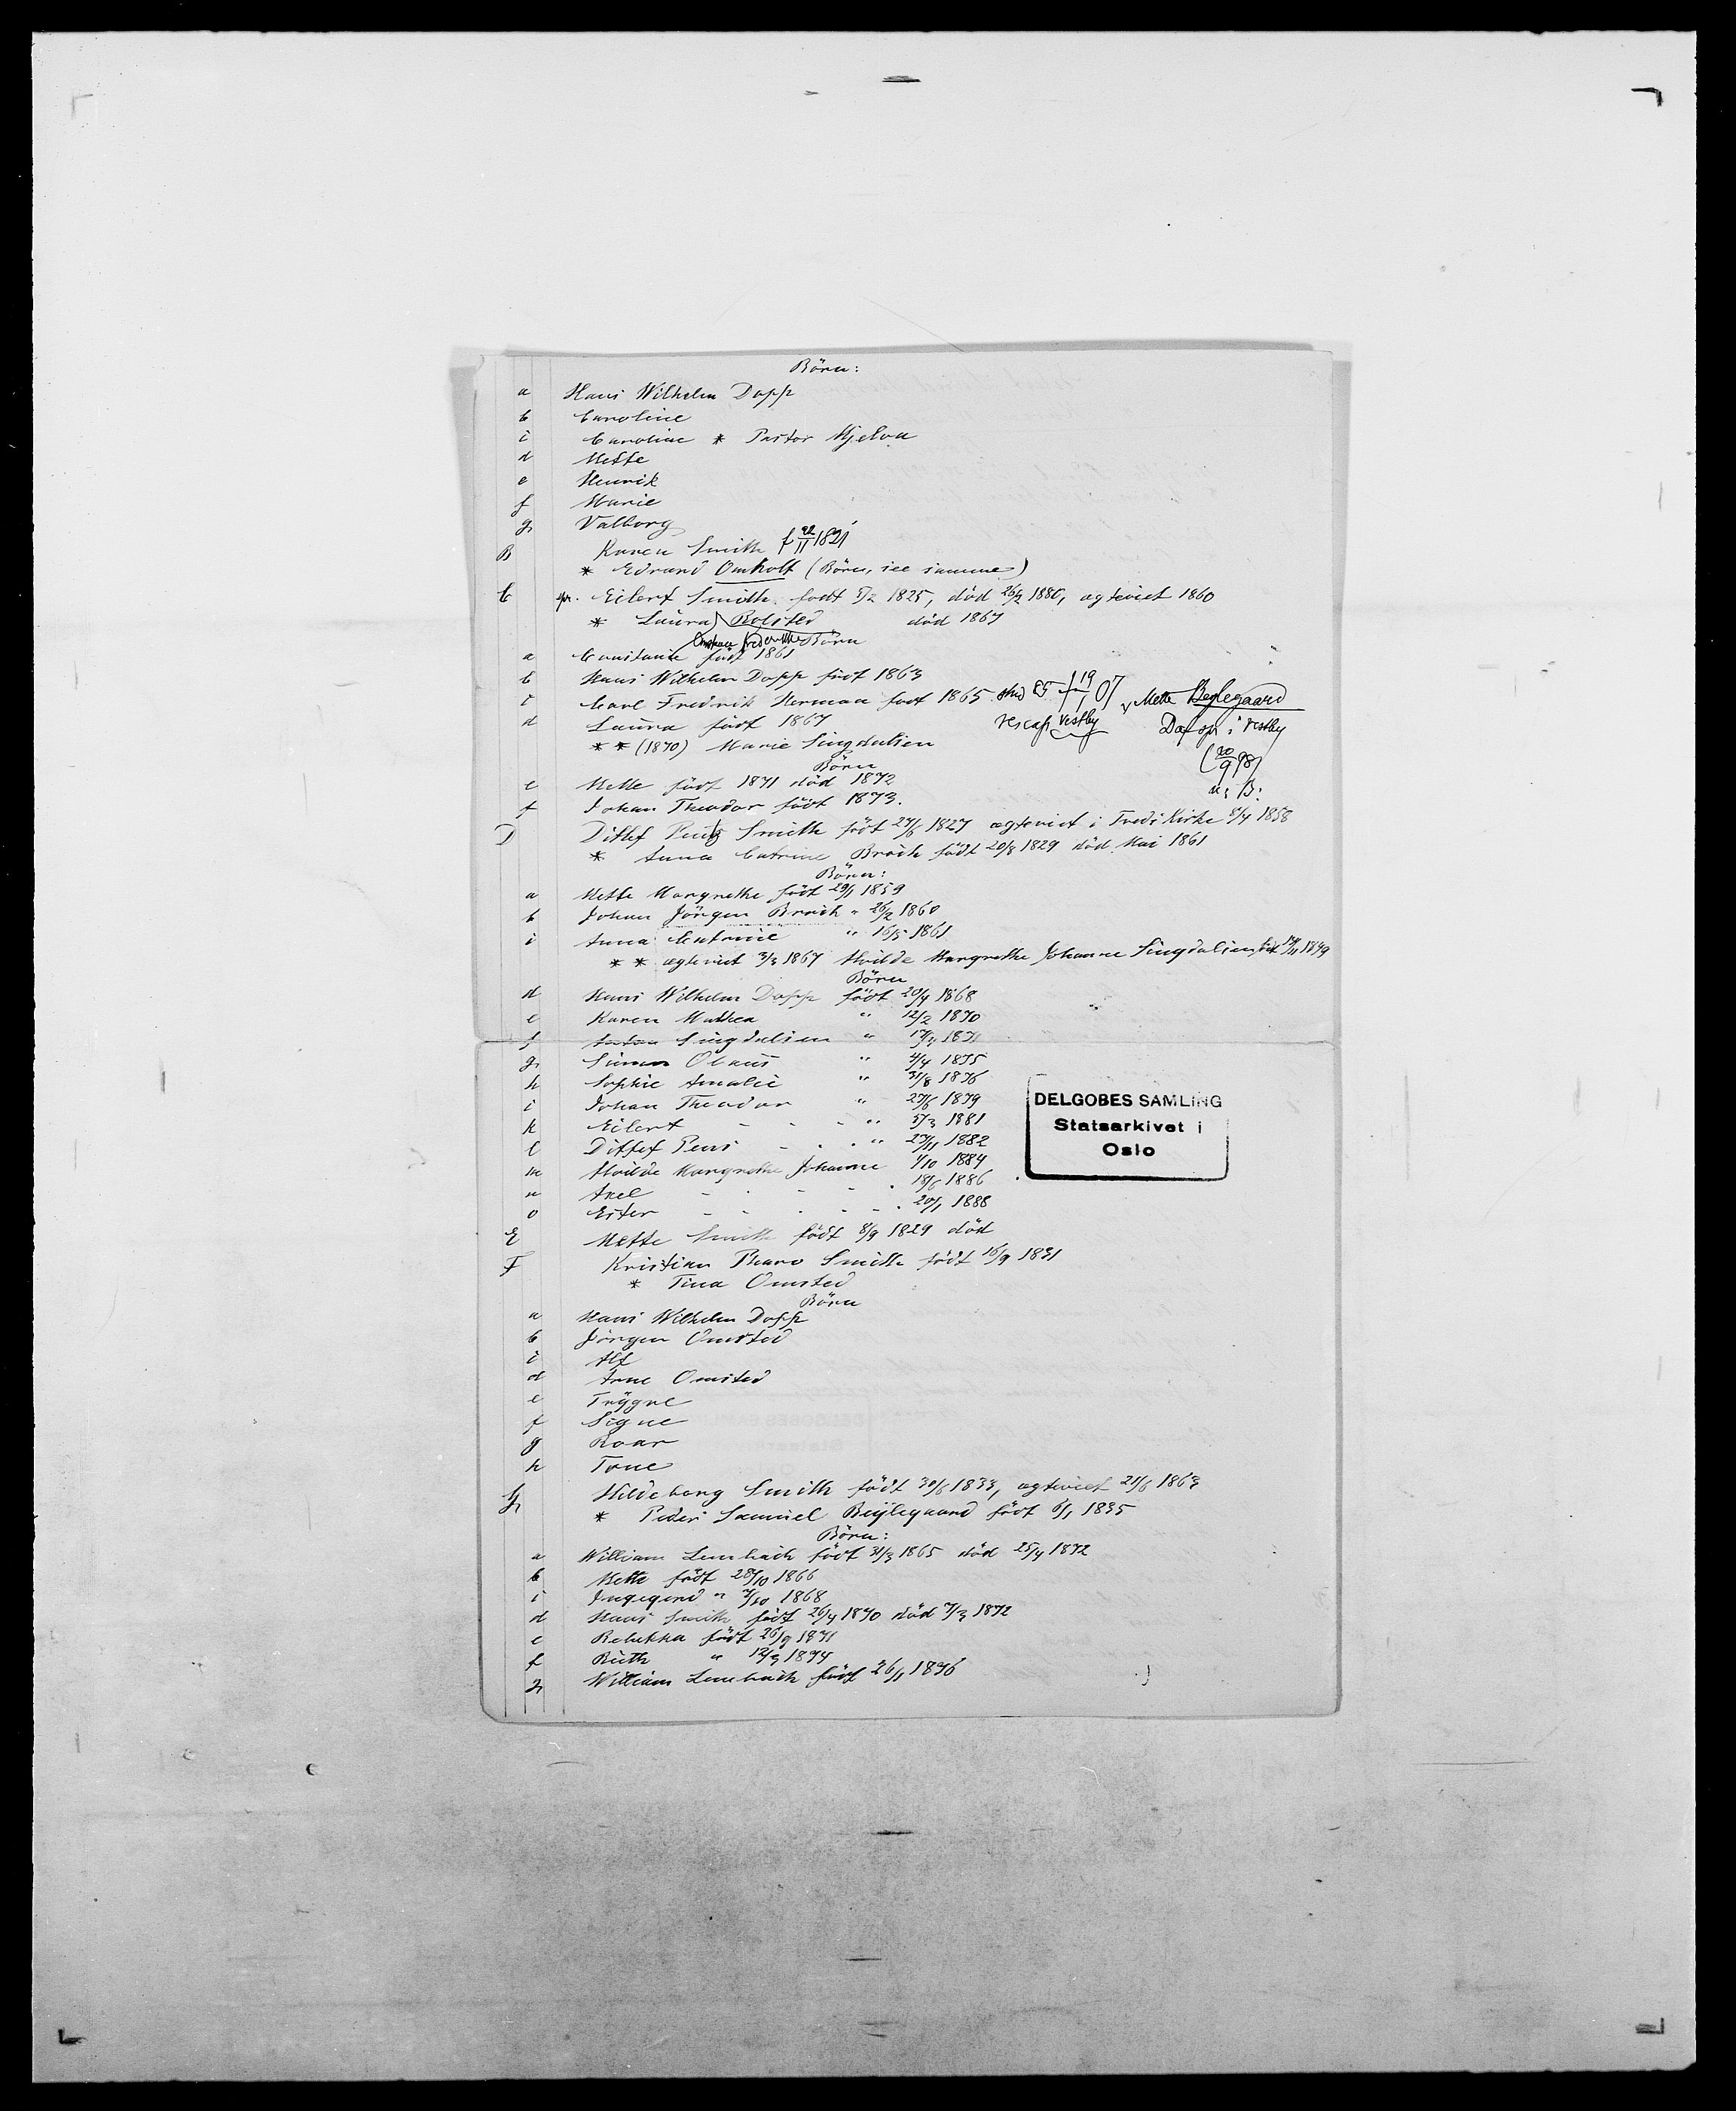 Börn:
a Hans Wilhelm Dopp
b Caroline
c Caroline * Pastor Mjelva
d Mette
e Henrik
f Marie
g Valborg
B Karen Smith f 22/11 1821
* Edvard Omholt (Börn, see samme)
C Eilert Smith født 5/2 1825, död 26/2 1880, egteviet 1860
* Laura Rolsted död 1867
Börn
a Constance födt 1861
b Hans Wilhelm Dopp födt 1863
c Carl Fredrik Herman født 1865 stud 85 † 19/1 07 v Mette Beglegaard
d Laura födt 1867 rescap Vestby Daf spr i Vestby
* * (1870) Marie Singdalsen (20/9 98)
Börn
e Mette födt 1871 död 1872 u: B:
f Johan Theodor födt 1873.
D Ditlef Smith födt 27/6 1827 egteviet i Freds Kirke 8/4 1858
* Anna Catrine Broch födt 20/8 1829 död Mai 1861
Börn:
a Mette Margrethe födt 29/1 1859
b Johan Jörgen Broch " 26/2 1860
c Anna Catrine " 16/5 1861
* * egteviet 3/3 1867 Hvilde Margrethe Johanne Singdalsen, födt 1839
Börn
d Hans Wilhelm Dopp födt 20/4 1868
e Karen Mathea " 12/2 1870
f Anton Singdalsen "
g Simon Olaus " 4/4 1875
h Sophie Amalie " 31/8 1876
i Johan Theodor " 27/6 1879
k Eilert - - - " 5/3 1881
l Ditlef - . . " 23/11 1882
m Hvilde Margrethe Johanne 1/10 1884
n Axel - . - - . 18/6 1886
o Ester - - . - - . 20/1 1888
E Mette Smith födt 8/9 1829 död
F Kristian Smith födt 15/9 1831
* Tina Omsted
Börn
a Hans Wilhelm Dopp
b Jörgen Omsted
c Alf
d Arne Omsted
e Trygve
f Signe
g Roar
h Tone
G Hildeborg Smith födt 30/6 1833, egteviet 21/6 1863
* Peder Samuel Beylegaard födt 6/1 1835
Börn:
a William Lembach födt 31/3 1865 död 25/4 1872
b Mette födt 28/10 1866
c Ingegerd " 7/10 1868
d Hans Smith födt 26/4 1870 död 7/3 1872
e Rebekka födt 26/9 1871
f Ruth " 12/3 1874
g William Lembach födt 26/1 1876
DELGOBES SAMLING
Statsarkivet i
Oslo